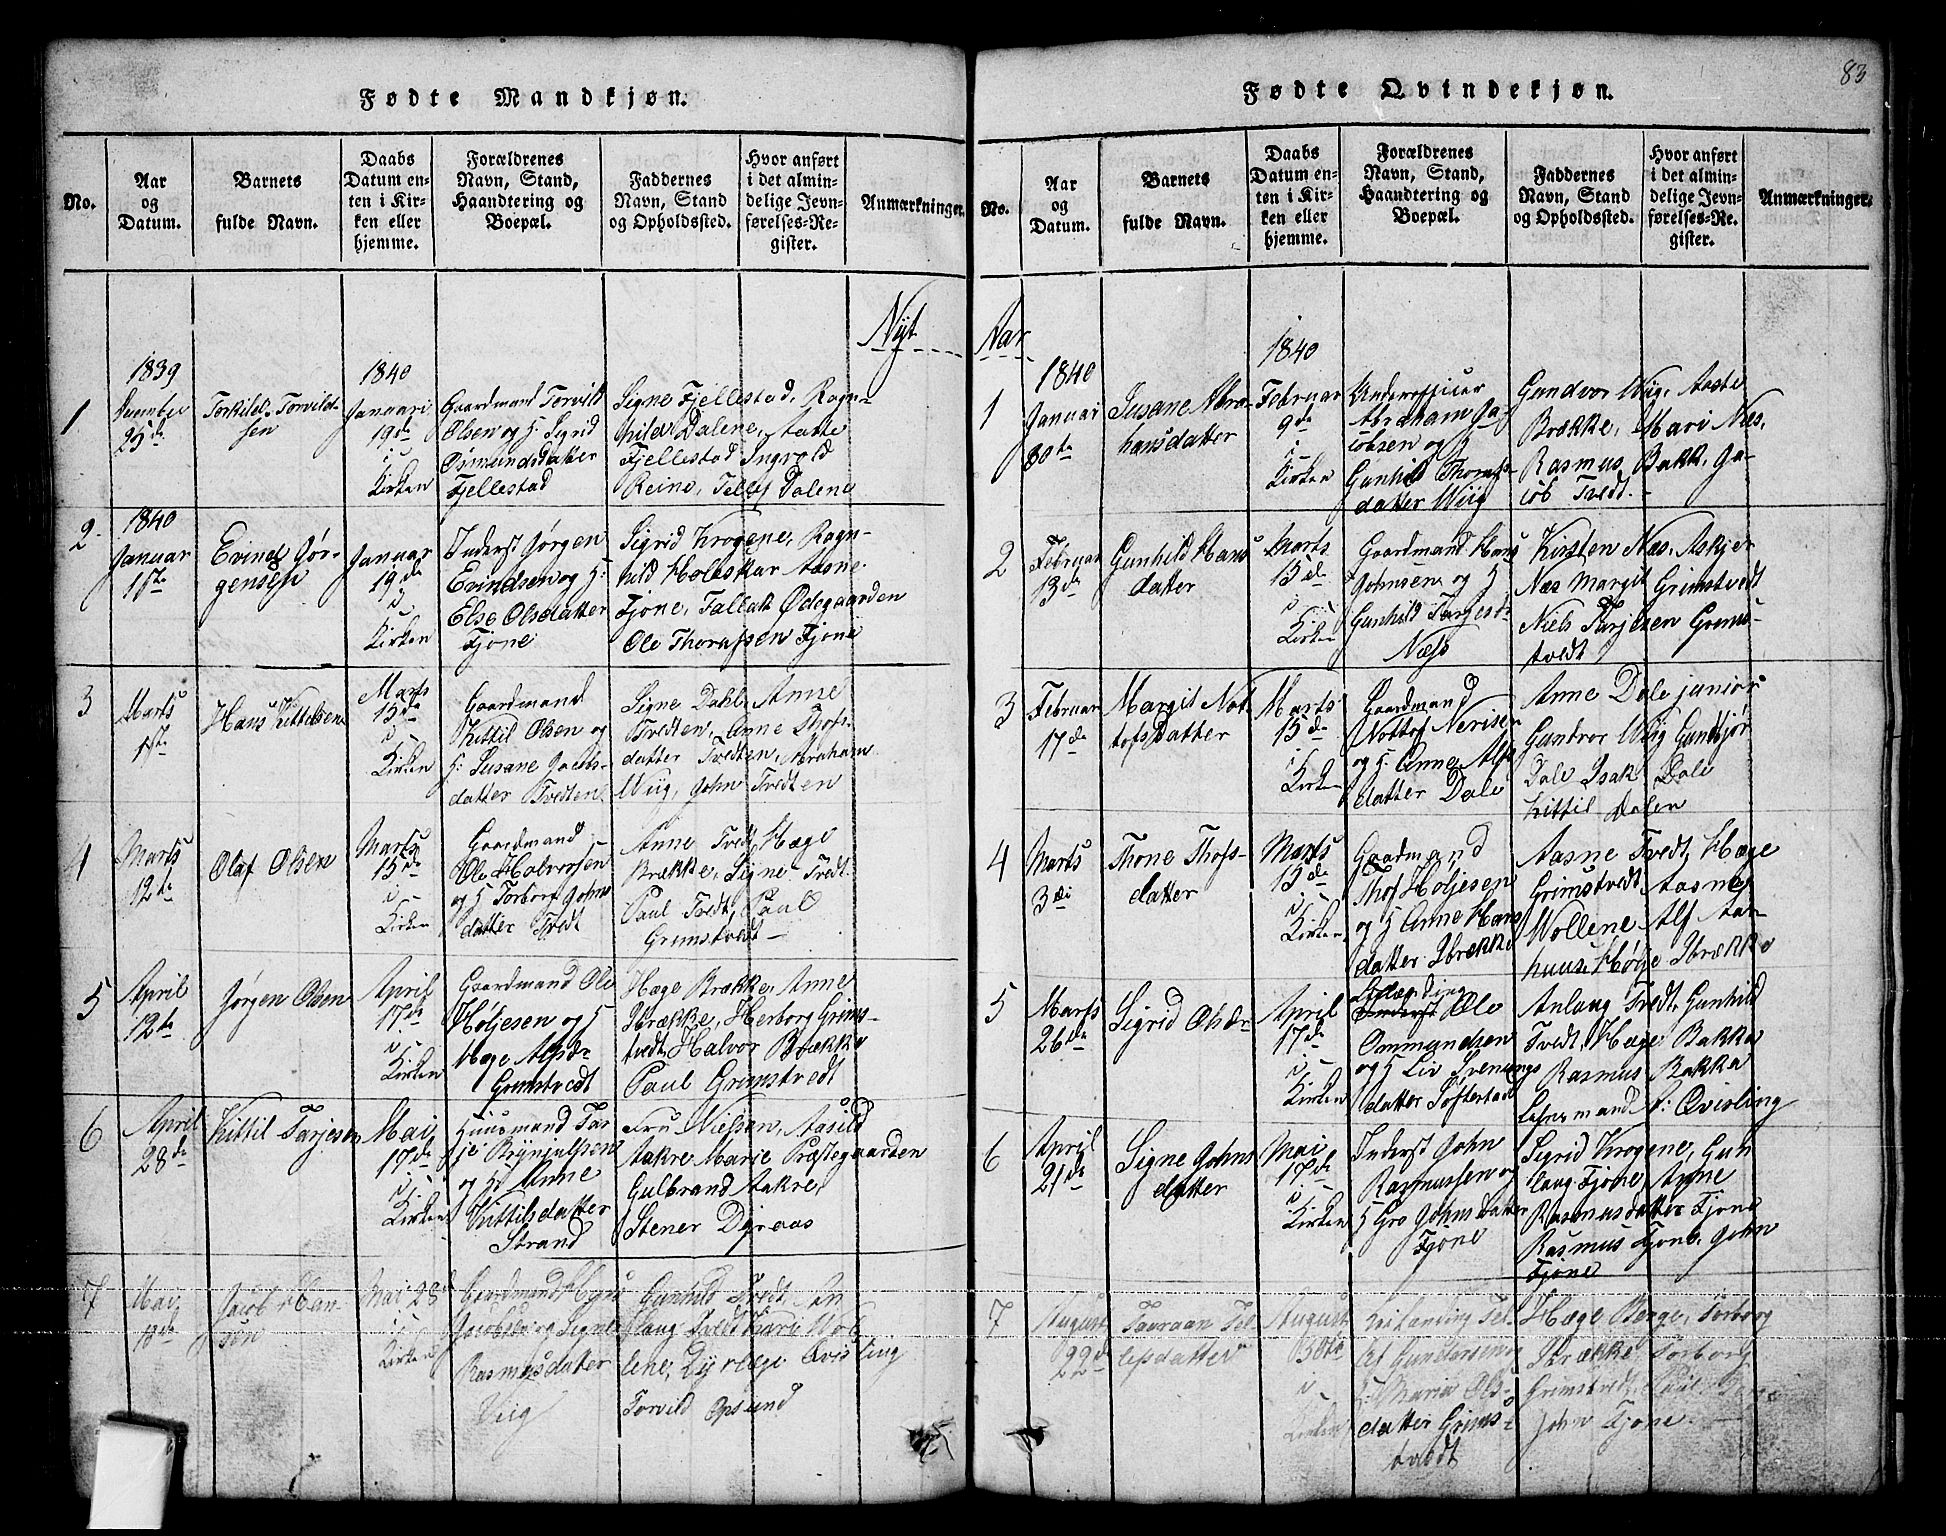 Fødte Mandkjøn.
No.
Aar
og
Datum.
Barnets
fulde Navn.
Daabs
Datum en-
ten i Kir-
ken eller
hjemme.
Forældrenes
Navn, Stand,
Haandtering og
Boepæl.
Faddernes
Navn, Stand
og Opholdssted.
Hvor anført
i det almin-
delige Jevn-
førelses-Re-
gister.
Anmærkninger.
Nyt
1
1839
December
25de
Torkild Torvild-
sen
1840
Januari
19de
i
Kirken
Gaardmand Torvild
Olsen og H Sigrid
Osmundsdatter
Fjellestad
Signe Fjellestad, Ragn-
hild Dalene, Aatte
Fjellestad Ingvold
Reine, Tellef Dalene
2
1840
Januar
1ste
Evind Jør-
gensen
Januar
19de
i
Kirken
Inderst Jørgen
Evindsen og H:
Else Olsdatter
Fjone
Sigrid Krogene, Ragn-
hild Holeskar Aasne
Fjone, Tallak Ødegaarden
Ole Thorassen Fjone
3
Marts
1ste
Hans Kittelsen
Marts
15de
i
Kirken
Gaardmand
Kittil Olsen og
H: Susane Jacobs-
datter Tvedten
Signe Dahl, Anne
Tvedten, Anne Thofs-
datter Tvedten, Abraham
Wiig, John Tvedten
4
Marts
12te
Olaf Olsen
Marts
15de
i
Kirken
Gaardmand
Ole Halvorsen
og H Torbor Johns
datter Tvedt
Anne Tvedt, Hæge
Brække, Signe Tvedt
Paul Tvedt, Paul
Grimstvedt
5
April
12te
Jørgen Olsen
April
17de
i
Kirken
Gaardmand Ole
Høljesen og H
Hæge Alfsdr
Grimstvedt
Hæge Brække, Anne
Ibrække, Herborg Grims-
tvedt, Halvor Brække
Paul Grimstvedt
6
April
28de
Kittil Tarjesen
Mai
17de
i
Kirken
Huusmand Tar
je Brynjulfsen
og H: Anne
Kittilsdatter
Strand
Fru Nielsen, Aasild
Aakre Marie Præstegaarden
Gulbrand Aakre,
Stener Dyraas
7
Mai
Jacob Han
sen
Mai 28de
i
Kirken
Gaardmand Hans
Jacobsen og Signe
Rasmusdatter
Viig
Gunhild Tvedt, An
laug Tvedt Kari Wol
lene, Dyrlæge Qvisling
Torvild Opsund
83
Fødte Qvindekjøn.
No.
Aar
og
Datum.
Barnets
fulde Navn.
Daabs
Datum en-
ten i Kir-
ken eller
hjemme.
Forældrenes
Navn, Stand,
Haandtering og
Boepæl.
Faddernes
Navn, Stand
og Opholdssted.
Hvor anført
i det almin-
delige Jevn-
førelses-Re-
gister.
Anmærkninger.
Aar
1
1840
Januar
30te
Susane Abra
hamsdatter
1840
Februar
9de
i
Kirken
Underofficer
Abraham Ja-
cobsen og H
Gunhild Thorafs-
datter Wiig
Gundvor Wiig, Aaste
Brække, Mari Næs,
Rasmus Bakk, Ja-
cob Tvedt.
2
Februar
13de
Gunhild Hans
datter
Marts
15de
i
Kirken
Gaardmand Hans
Johnsen og H
Gunhild Tarjesdr
Næss
Kirsten Næs, Askjer
Næs Margit Grimstvedt
Niels Tarjesen Grims-
tvedt
3
Februar
17de
Margit Not
tofsdatter
Marts
15de
i
Kirken
Gaardmand
Nottof Nerisen
og H: Anne Alfs
datter Dale
Anne Dale junior
Gundvor Wiig Gundbjør
Dale Isak Dale
Kittil Dalen
4
Marts
3die
Thone Thofs-
datter
Marts
15de
i
Kirken
Gaardmand
Thof Høljesen
og H Anne Hans
datter Ibrække
Aasne Tvedt, Hæge
Grimstvedt, Aasne
Wollene Alf Aar-
huus Hølje Ibrække
5
Marts
26de
Sigrid Olsdr
April
17de
i
Kirken
Ole
Ommundsen
og H Liv Svenungs
datter Softestad
Anlaug Tvedt, Gunhild
Tvedt, Hæge Bakka
Rasmus Bakka
Lensmand Qvisling
6
April
21de
Signe Johns
datter
Mai
17de
i
Kirken
Inderst John
Rasmussen og
H Gro Johnsdatter
Fjone
Sigrid Krogene, Gun
laug Fjone, Anne
Rasmusdatter Fjone
Rasmus Fjone, John
Fjone
7
August
22de
Taaraan Tel
lefsdatter
August
30te
i
Kirken
Tel
lef Gundersen og
H: Maria Ols-
datter Grims-
tvedt
Hæge Berge, Torborg
Ibrække, Torborg
Grimstvedt, Paul
John Fjone